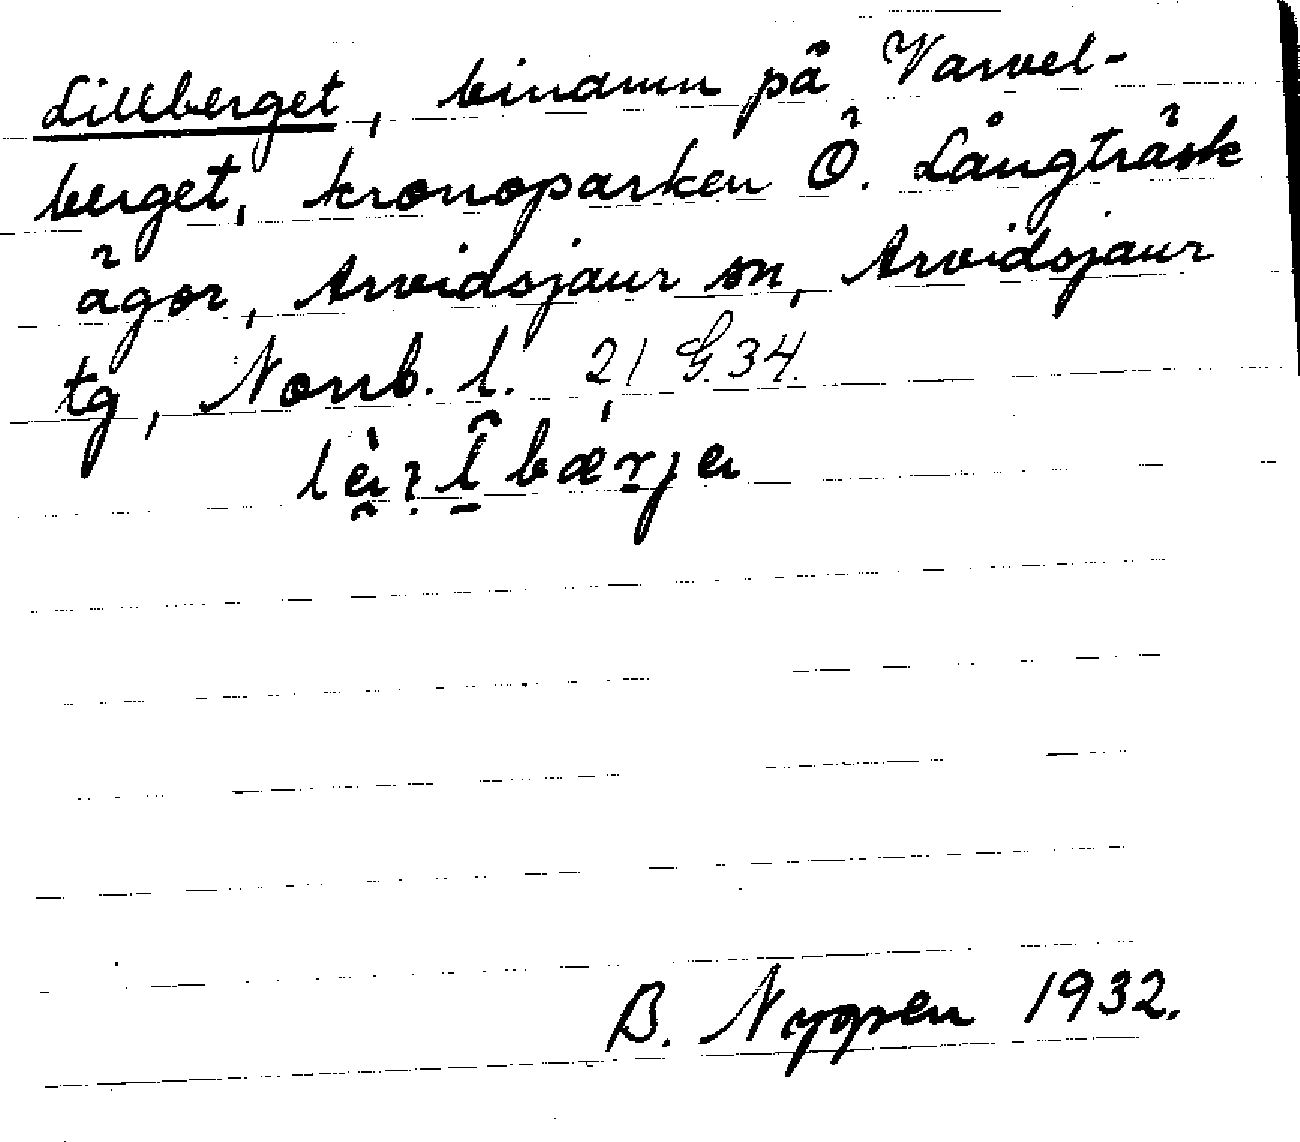 Lillberget, binamn på Varvel-
berget, kronoparken Ö. Långträsk
ägor, Arvidsjaur sn, Arvidsjaur
tg, Norrb. l. 21 G. 34.
B. Nygren 1932.